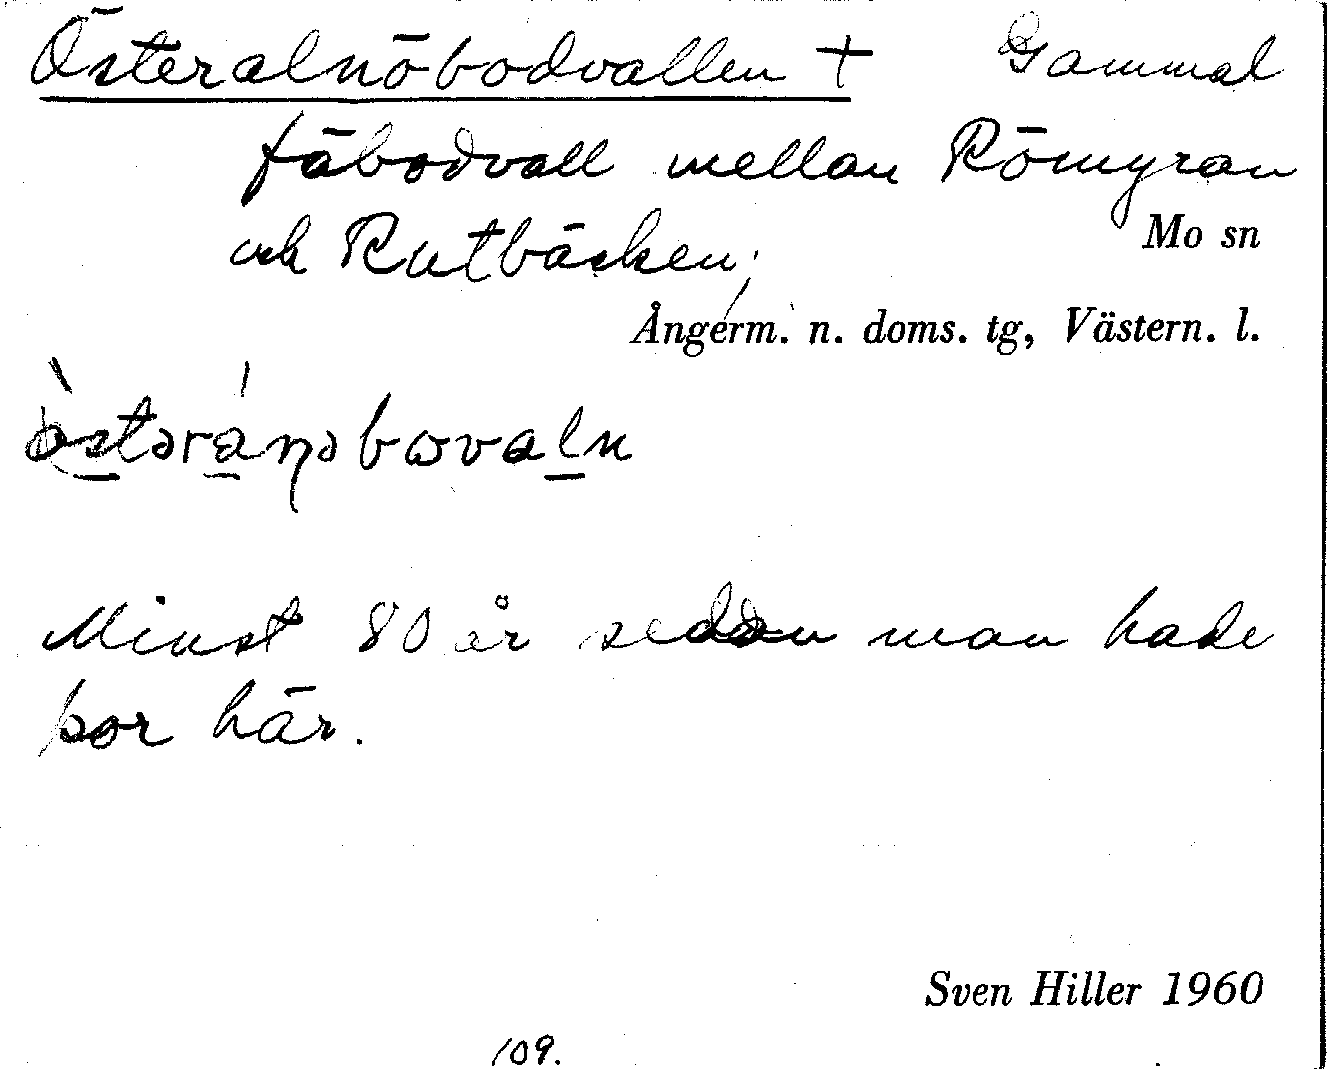 Österalnöbodvallen † Gammal
fäbodvall mellan Römyran
och Rutbäcken;
Mo sn
Ångerm. n. doms. tg, Västern. l.
Minst 80 år sedan man hade
por här.
Sven Hiller 1960
109.